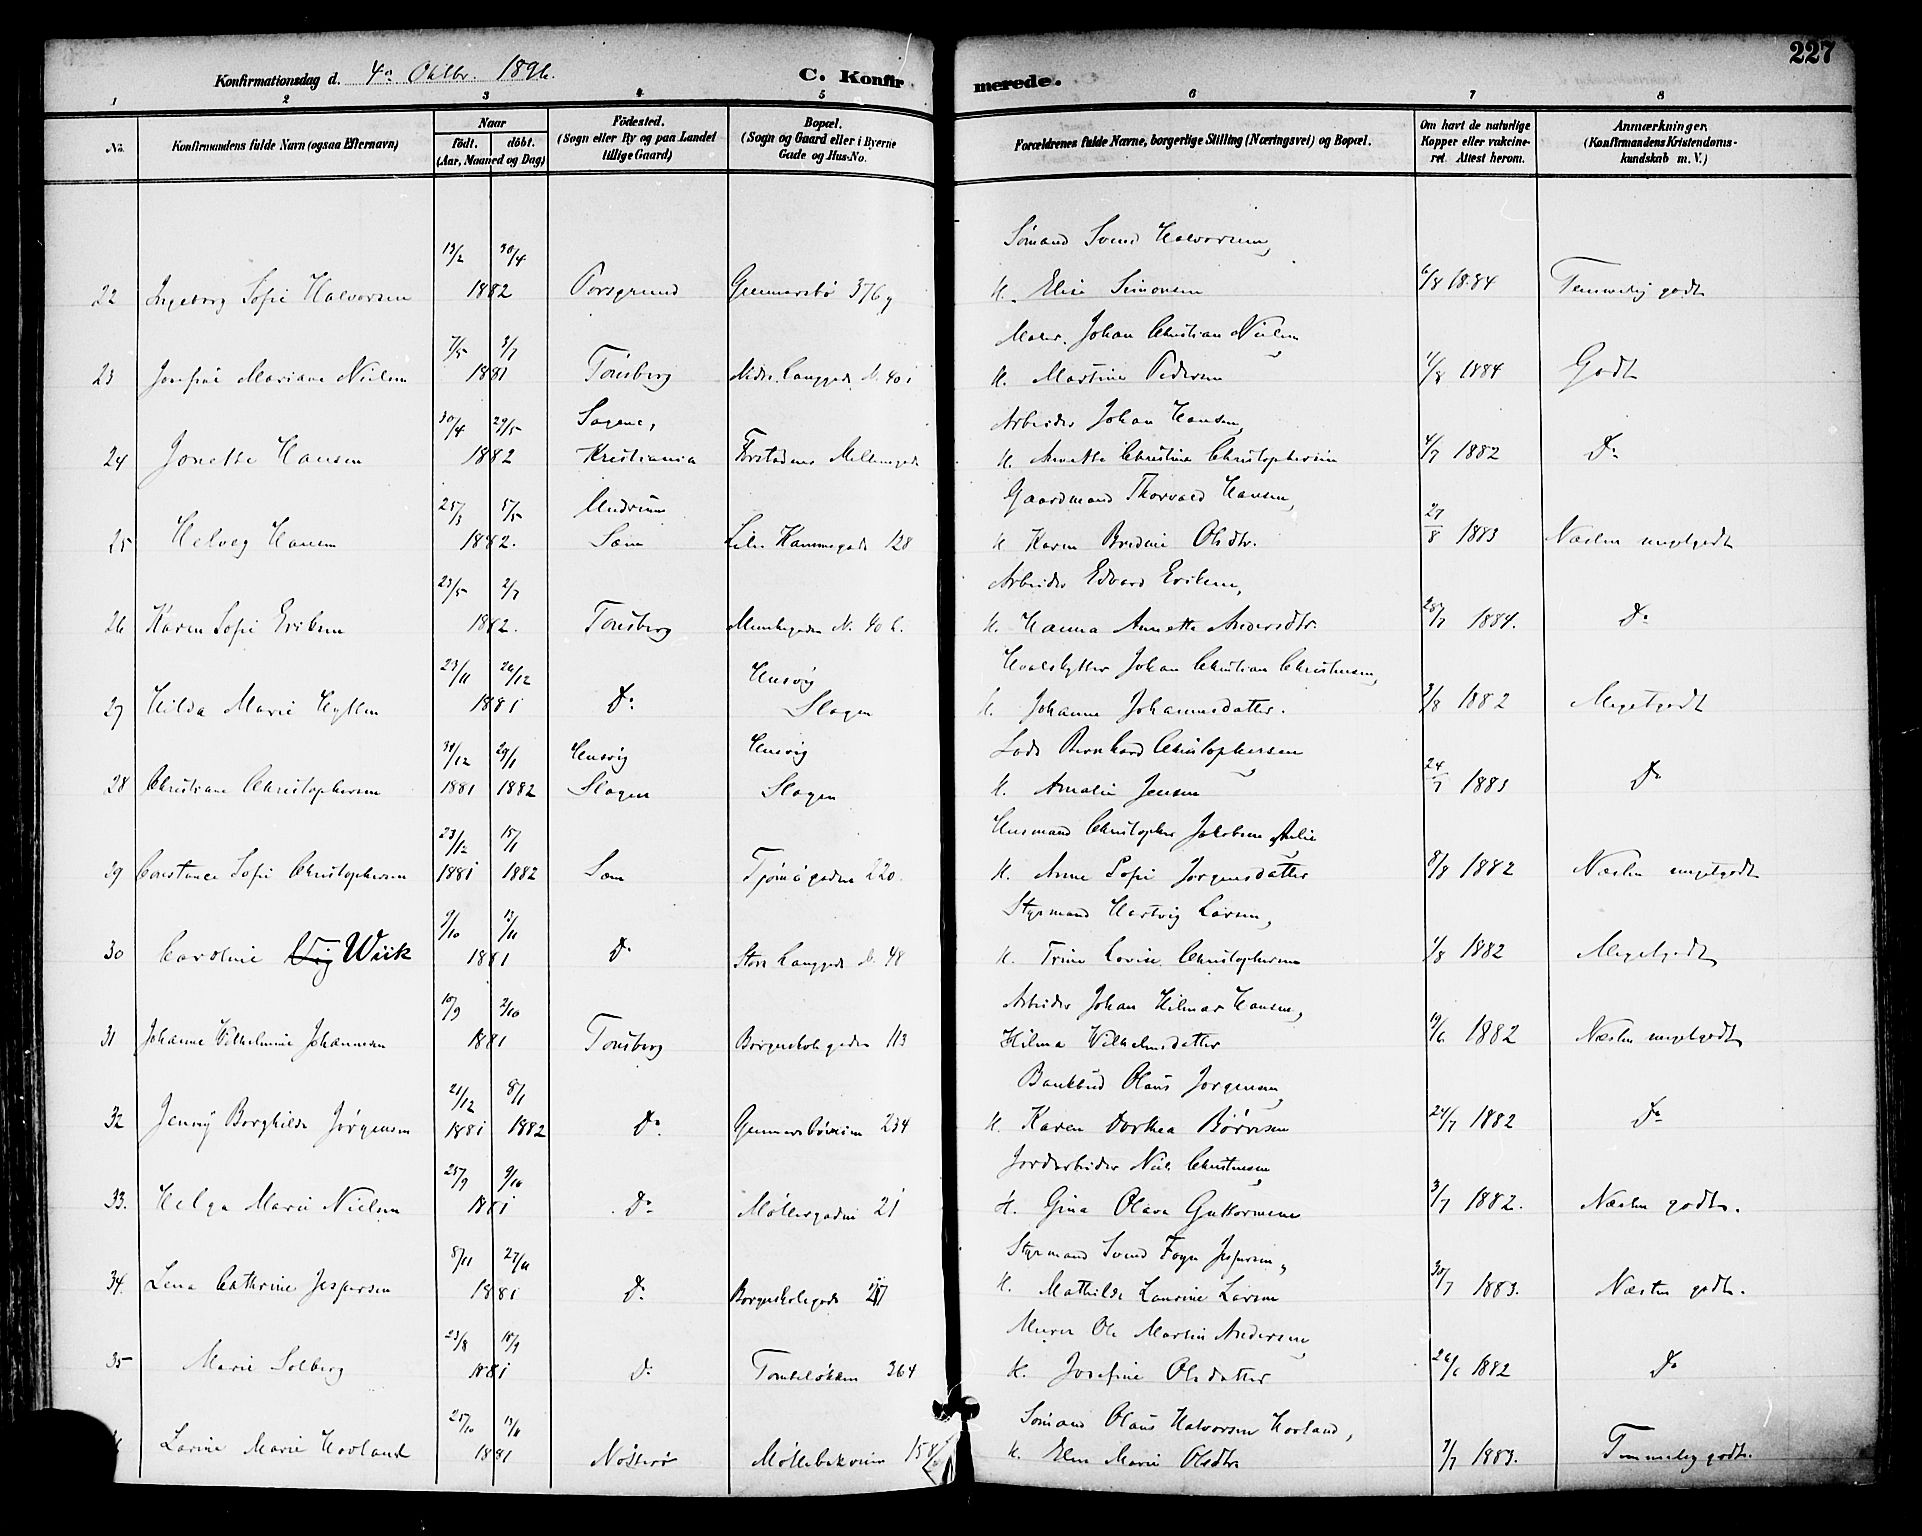 227
Konfirmationsdag d. 4de Oktbr. 1896.
C. Konfirmerede.
1 2 3 4 5 6 7 8
No. Konfirmandens fulde Navn (ogsaa Efternavn) Naar født. døbt. (Aar, Maaned og Dag) Fødested. (Sogn eller By og paa Landet tillige Gaard) Bopæl. (Sogn og Gaard eller i Byerne Gade og Hus-No. Forældrenes fulde Navne, borgerlige Stilling (Næringsvei) og Bopæl. Om havt de naturlige Kopper eller vakcineret. Attest herom. Anmærkninger. (Konfirmandens Kristendomskundskab m. V.)
13/2 30/4 Sømand Svend Halvorsen,
22 Ingeborg Sofie Halvorsen 1882 Porsgrund Gunnarsbø 376 g H. Elise Simonsen 6/8 1884 Temmelig godt
7/5 3/7 Maler Johan Christian Nielsen,
23 Josefine Mariane Nielsen 1881 Tønsberg Nedre Langgade N. 40 i H. Martine Pedersen 4/8 1884 Godt
30/4 29/5 Sagene, Arbeider Johan Hansen,
24 Jonette Hansen 1882 Kristiania Forstadens Møllegade H. Annette Christine Christophersen 4/7 1882 Do
25/3 5/5 Undrum Gaardmand Thorvald Hansen,
25 Helveg Hansen 1882. Sæm Lille Kammegade 128 H. Karen Bredine Olsdtr. 27/8 1883 Næsten megetgodt
23/5 2/7 Arbeider Edvard Eriksen,
26 Karen Sofie Eriksen 1882. Tønsberg Munkegaden N. 40 b. H. Hanna Annette Andersdtr. 25/7 1884. Do
23/11 26/12 Husvig Hvalskytter Johan Christian Christensen,
27 Hilda Marie Hyllen 1881 Do Slagen H. Johanne Johannesdatter. 3/8 1882 Megetgodt
30/12 29/1 Husvig Husvig Lods Bernhard Christophersen
28 Christiane Christophersen 1881 1882 Slagen Slagen H. Amalie Jensen 24/7 1883 Do
23/12 15/1 Husmand Christopher Jakobsen Aulie
29 Constance Sofie Christophersen 1881 1882 Sæm Tjømøgaden 220. H. Anne Sofie Jørgensdatter 8/8 1882 Næsten megetgodt
9/10 13/11 Styrmand Hartvig Larsen,
30 Caroline Vig Wiik 1881 Do Store Langgade N. 48 H. Trine Lovise Christophersen 1/8 1882 Megetgodt
10/9 2/10 Arbeider Johan Hilmar Hansen,
31 Johanne Wilhelmine Johannesen 1881 Tønsberg Borgerskolegaden 113 Hilma Wilhelmsdatter 19/6 1882 Næsten megetgodt
21/12 8/1 Bankbud Olaus Jørgensen,
32 Jenny Borghilde Jørgensen 1881 1882 Do Gunnarsbøveien 234 H. Karen Dorthea Børresen 24/7 1882 Do
25/9 9/10 Jordarbeider Niels Christensen,
33. Helga Marie Nielsen 1881 Do Møllergaden 21 H. Gina Olava Guttormsen 3/7 1882. Næsten godt.
8/11 27/11 Styrmand Svend Foyn Jespersen,
34. Lena Cathrine Jespersen 1881 Do Borgerskolegade H. Mathilde Laurine Larsen 30/7 1883. Næsten godt.
23/8 18/9 Murer Ole Martin Andersen,
35 Marie Solberg 1881 Do Tombeløkken 364 H. Josefine Olsdatter 26/6 1882 Do
25/10 13/11 Sømand Olaus Halvorsen Hovland,
Larine Marie Hovland 1881 Nøtterø Møllebakveien 158 H. Elen Marie Olsdtr 9/7 1883. Temmelig godt.